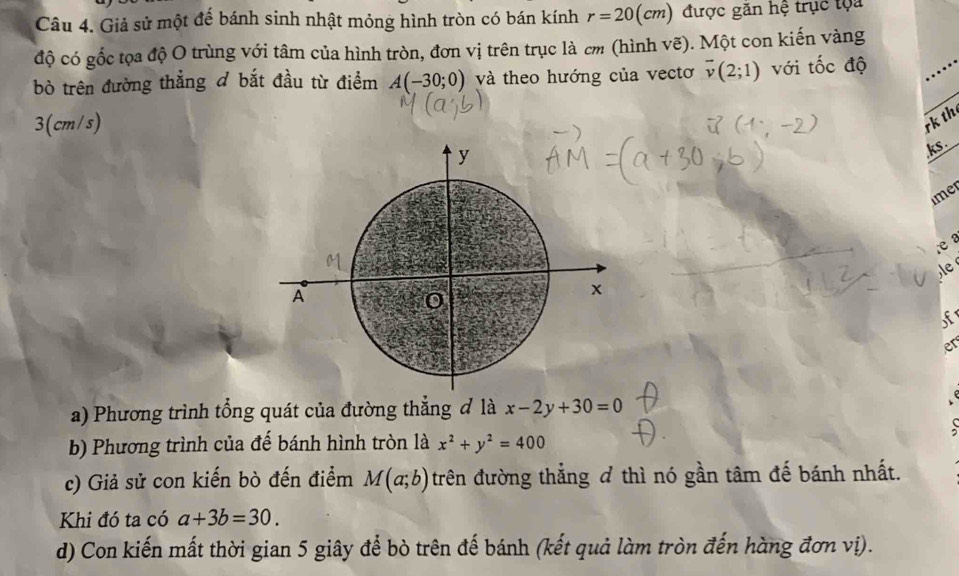 Câu 4. Giả sử một đế bánh sinh nhật mỏng hình tròn có bán kính r = 20(cm) được gắn hệ trục tọa
độ có gốc tọa độ O trùng với tâm của hình tròn, đơn vị trên trục là cm (hình vẽ). Một con kiến vàng
bò trên đường thẳng d bắt đầu từ điểm A(−30;0) và theo hướng của vectơ v⃗(2;1) với tốc độ
M(a;b)
3(cm/s)
u⃗ (1; -2)
AM⃗ = (a+30; b)
y
M
A
O
x
a) Phương trình tổng quát của đường thẳng d là x−2y+30=0 Đ
b) Phương trình của đế bánh hình tròn là x² + y² = 400 Đ.
c) Giả sử con kiến bò đến điểm M(a;b) trên đường thẳng d thì nó gần tâm đế bánh nhất.
Khi đó ta có a+3b=30.
d) Con kiến mất thời gian 5 giây để bò trên đế bánh (kết quả làm tròn đến hàng đơn vị).